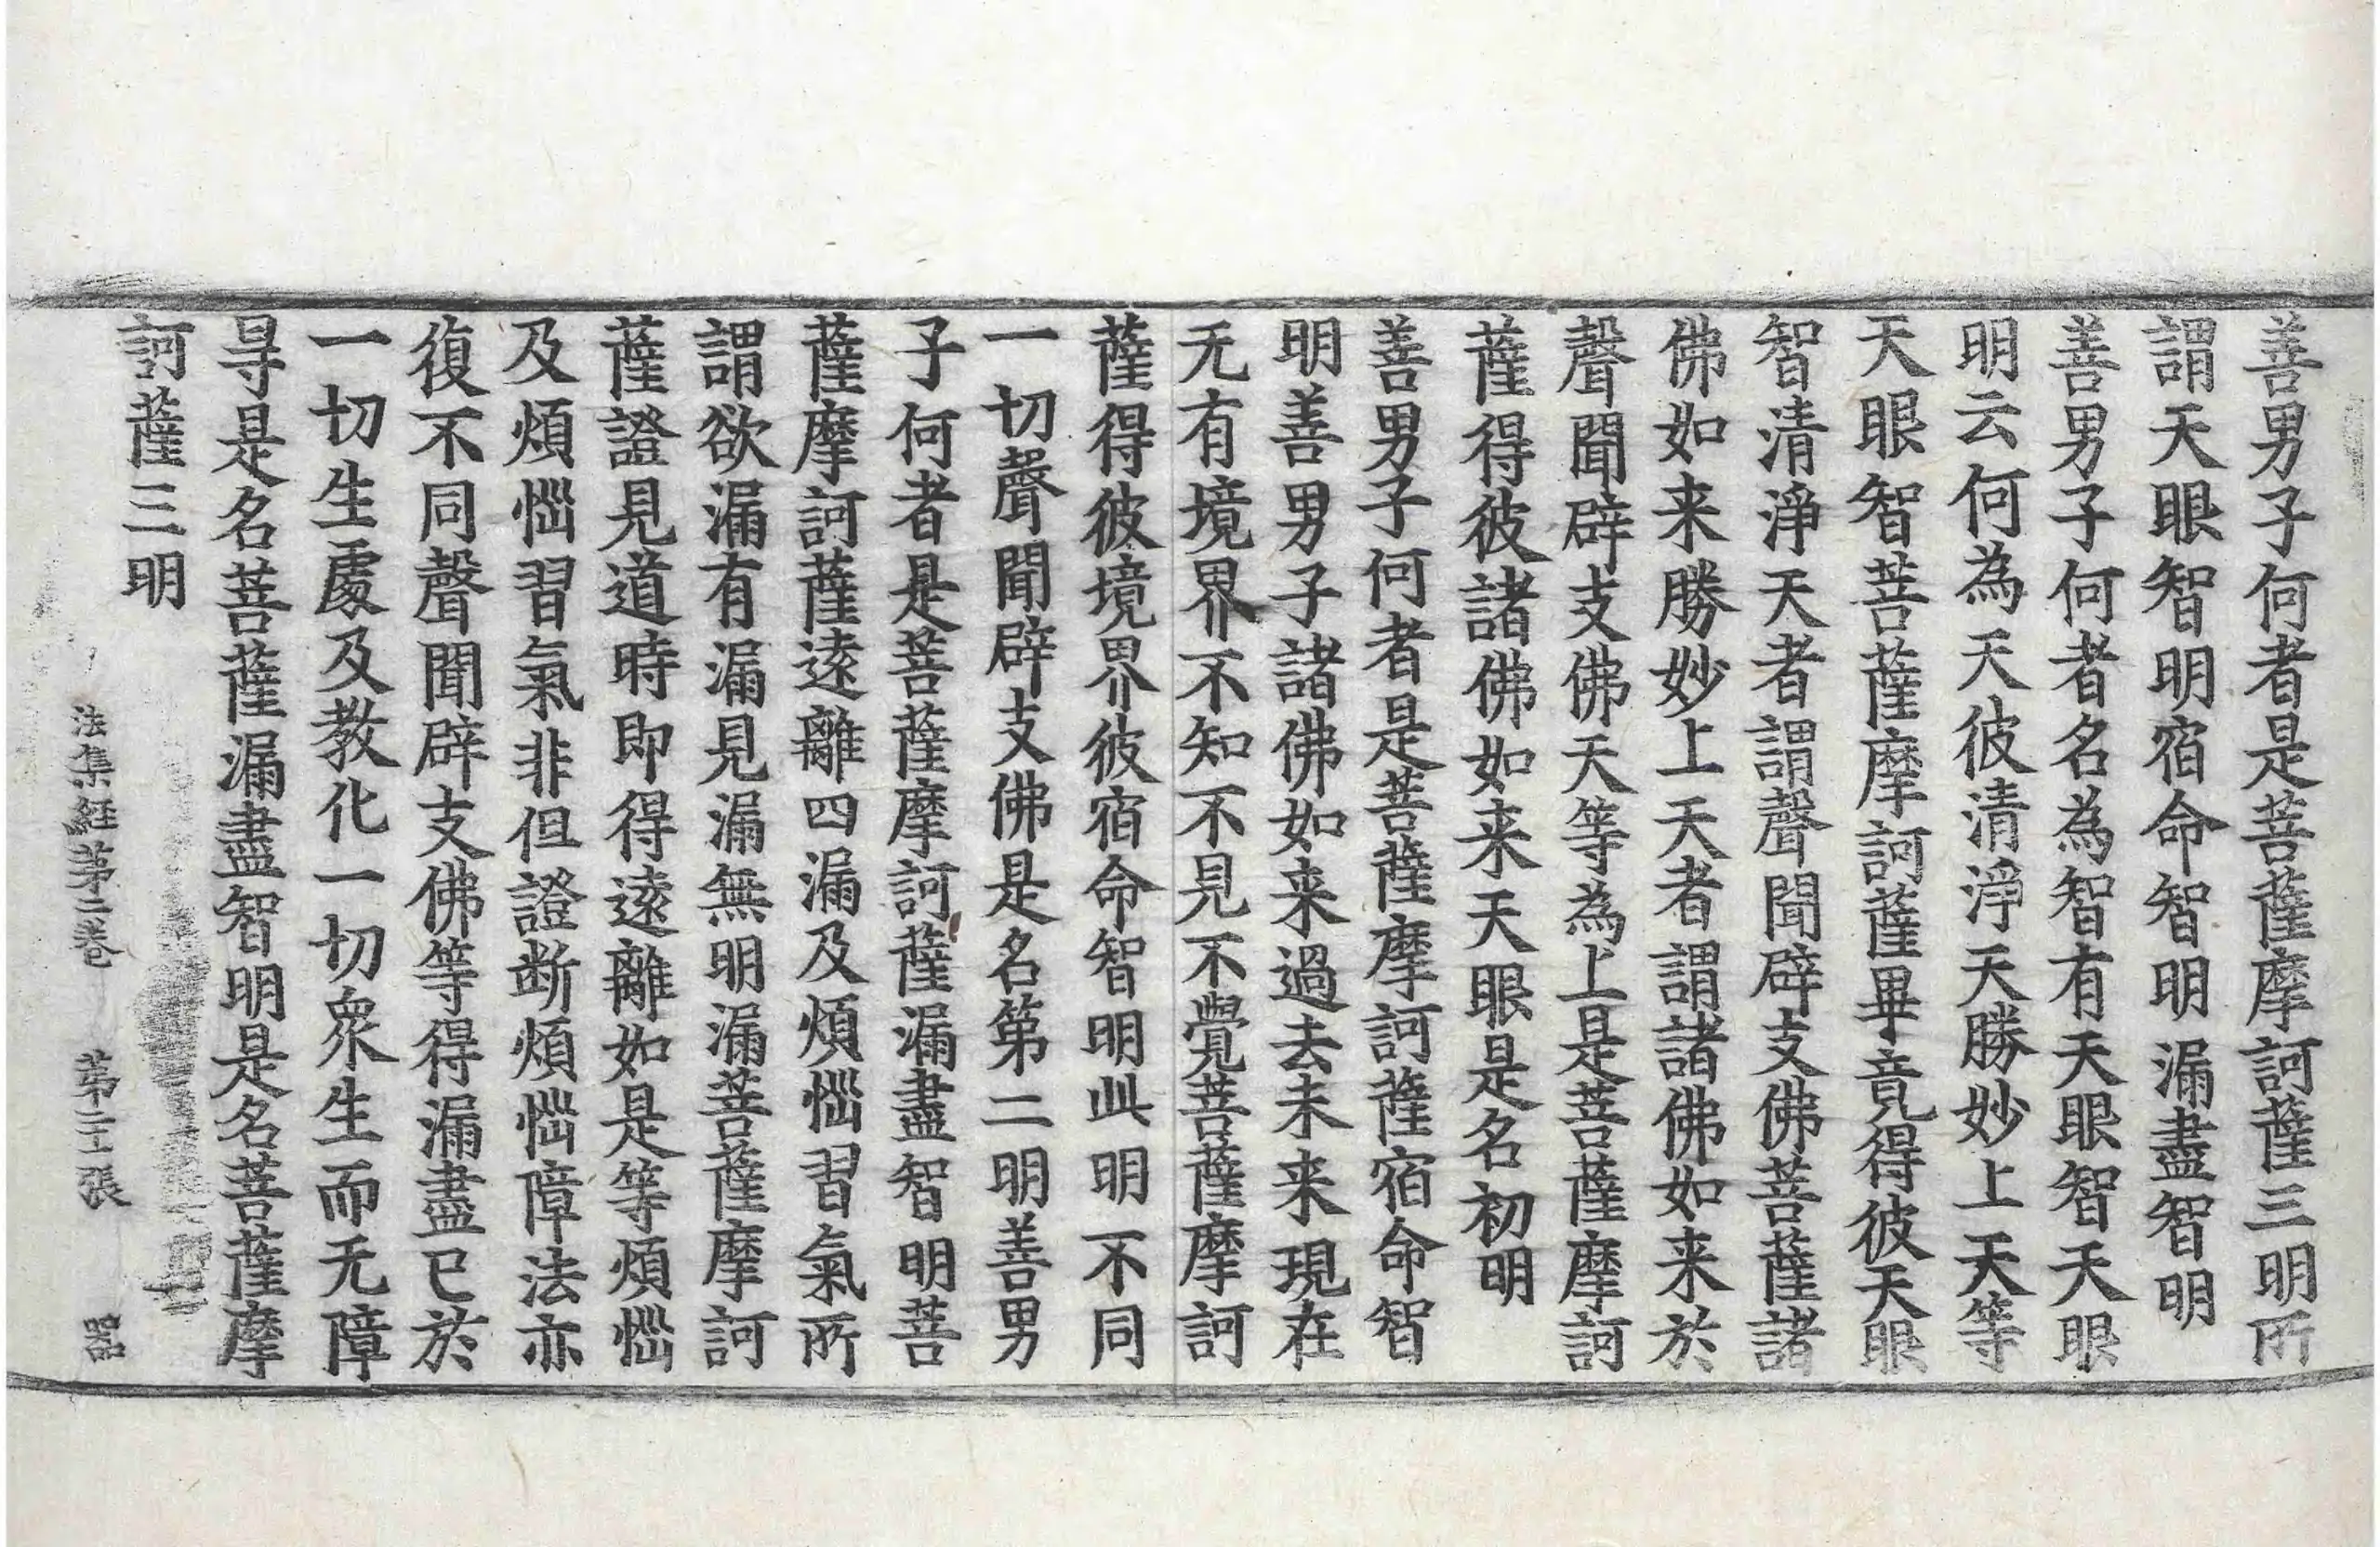 善男子何者是菩薩摩訶薩三明所
謂天眼智明宿命智明漏盡智明
善男子何者名為智有天眼智天眼
明云何為天彼清淨天勝妙上天等
天眼智菩薩摩訶薩畢竟得彼天眼
智清淨天者謂聲聞辟支佛菩薩諸
佛如来勝妙上天者謂諸佛如来於
聲聞辟支佛天等為上是菩薩摩訶
薩得彼諸佛如来天眼是名初明
善男子何者是菩薩摩訶薩宿命智
明善男子諸佛如来過去未来現在
无有境界不知不見不覺菩薩摩訶
薩得彼境界彼宿命智明此明不同
一切聲聞辟支佛是名第二明善男
子何者是菩薩摩訶薩漏盡智明菩
薩摩訶薩遠離四漏及煩惱習氣所
謂欲漏有漏見漏無明漏菩薩摩訶
薩證見道時即得遠離如是等煩惱
及煩惱習氣非但證断煩惱障法亦
復不同聲聞辟支佛等得漏盡已於
一切生處及教化一切眾生而无障
㝵是名菩薩漏盡智明是名菩薩摩
訶薩三明
法集経第二卷 第二十張 器